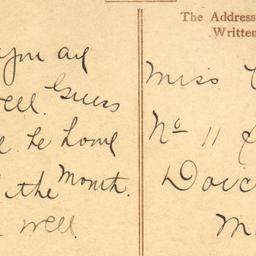 The Address
Written
you are
well. Guess
be home
the Month.
well
Miss
No 11
M